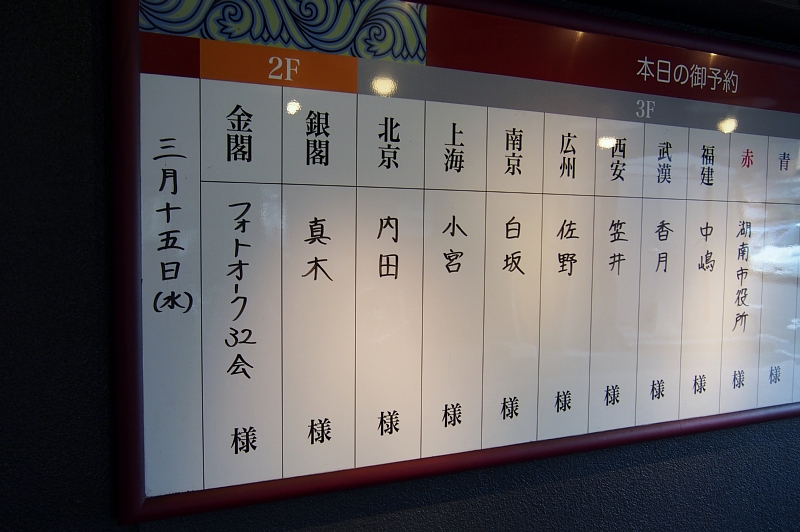 本日の御予約
2F
3F
三月十五日(水)
金閣 フォトオーク32会 様
銀閣 真木 様
北京 内田 様
上海 小宮 様
南京 白坂 様
広州 佐野 様
西安 笠井 様
武漢 香月 様
福建 中嶋 様
赤 湖南市役所 様
青 様